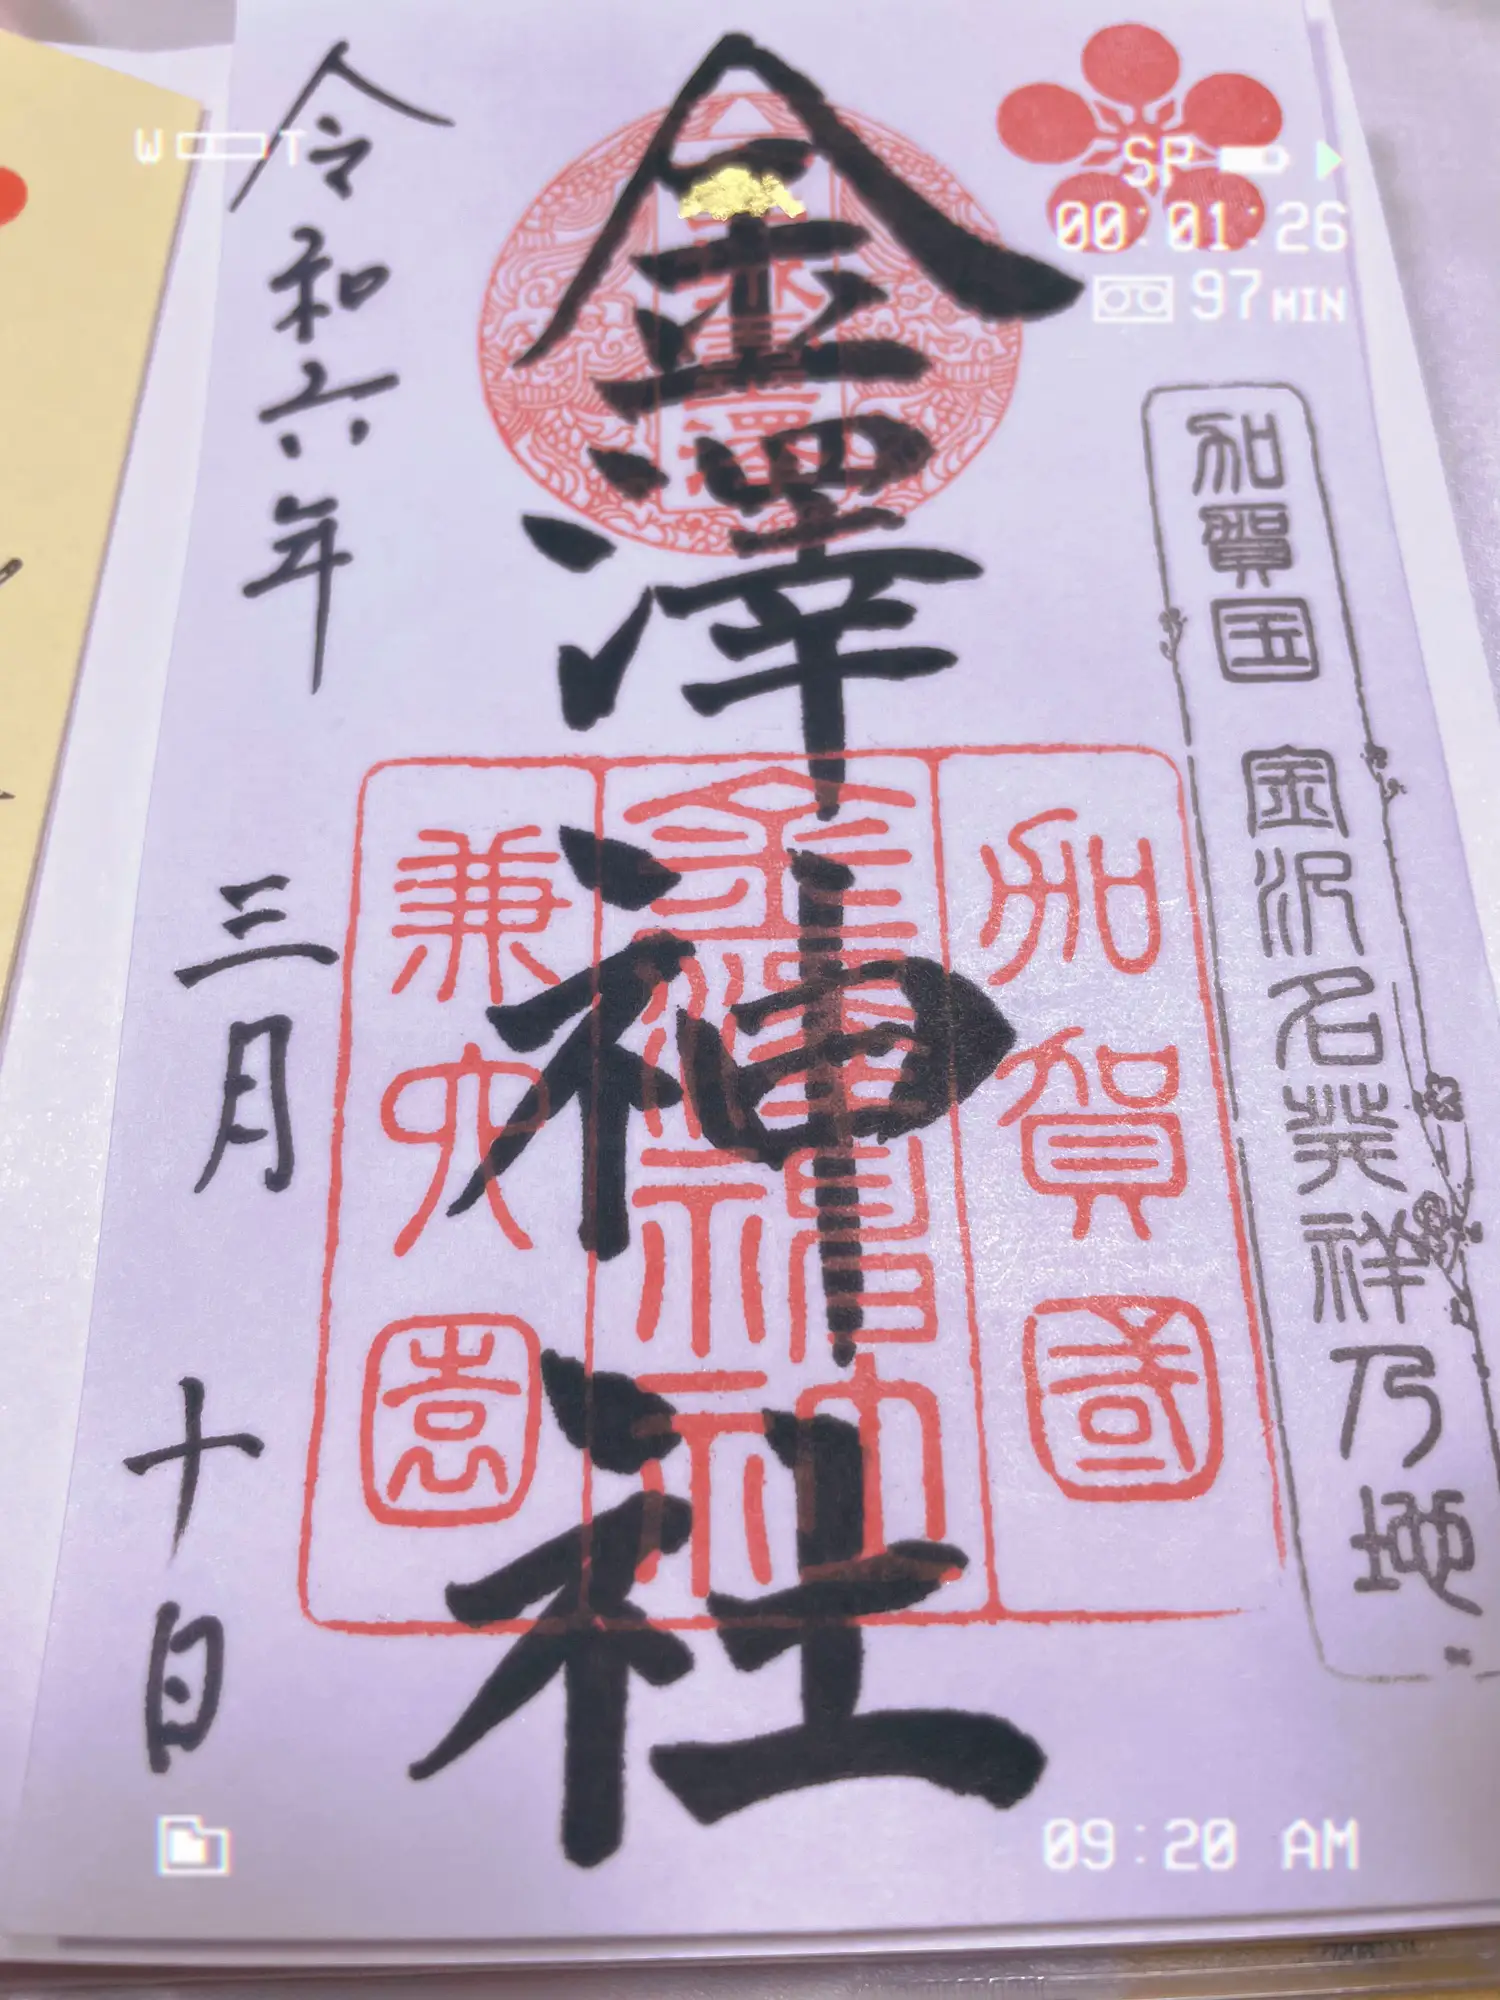 W T
SP
00:01:26
97 MIN
加賀国 金沢名発祥乃地
加賀國
金澤神社
兼六園
令和六年 三月 十日
09:20 AM